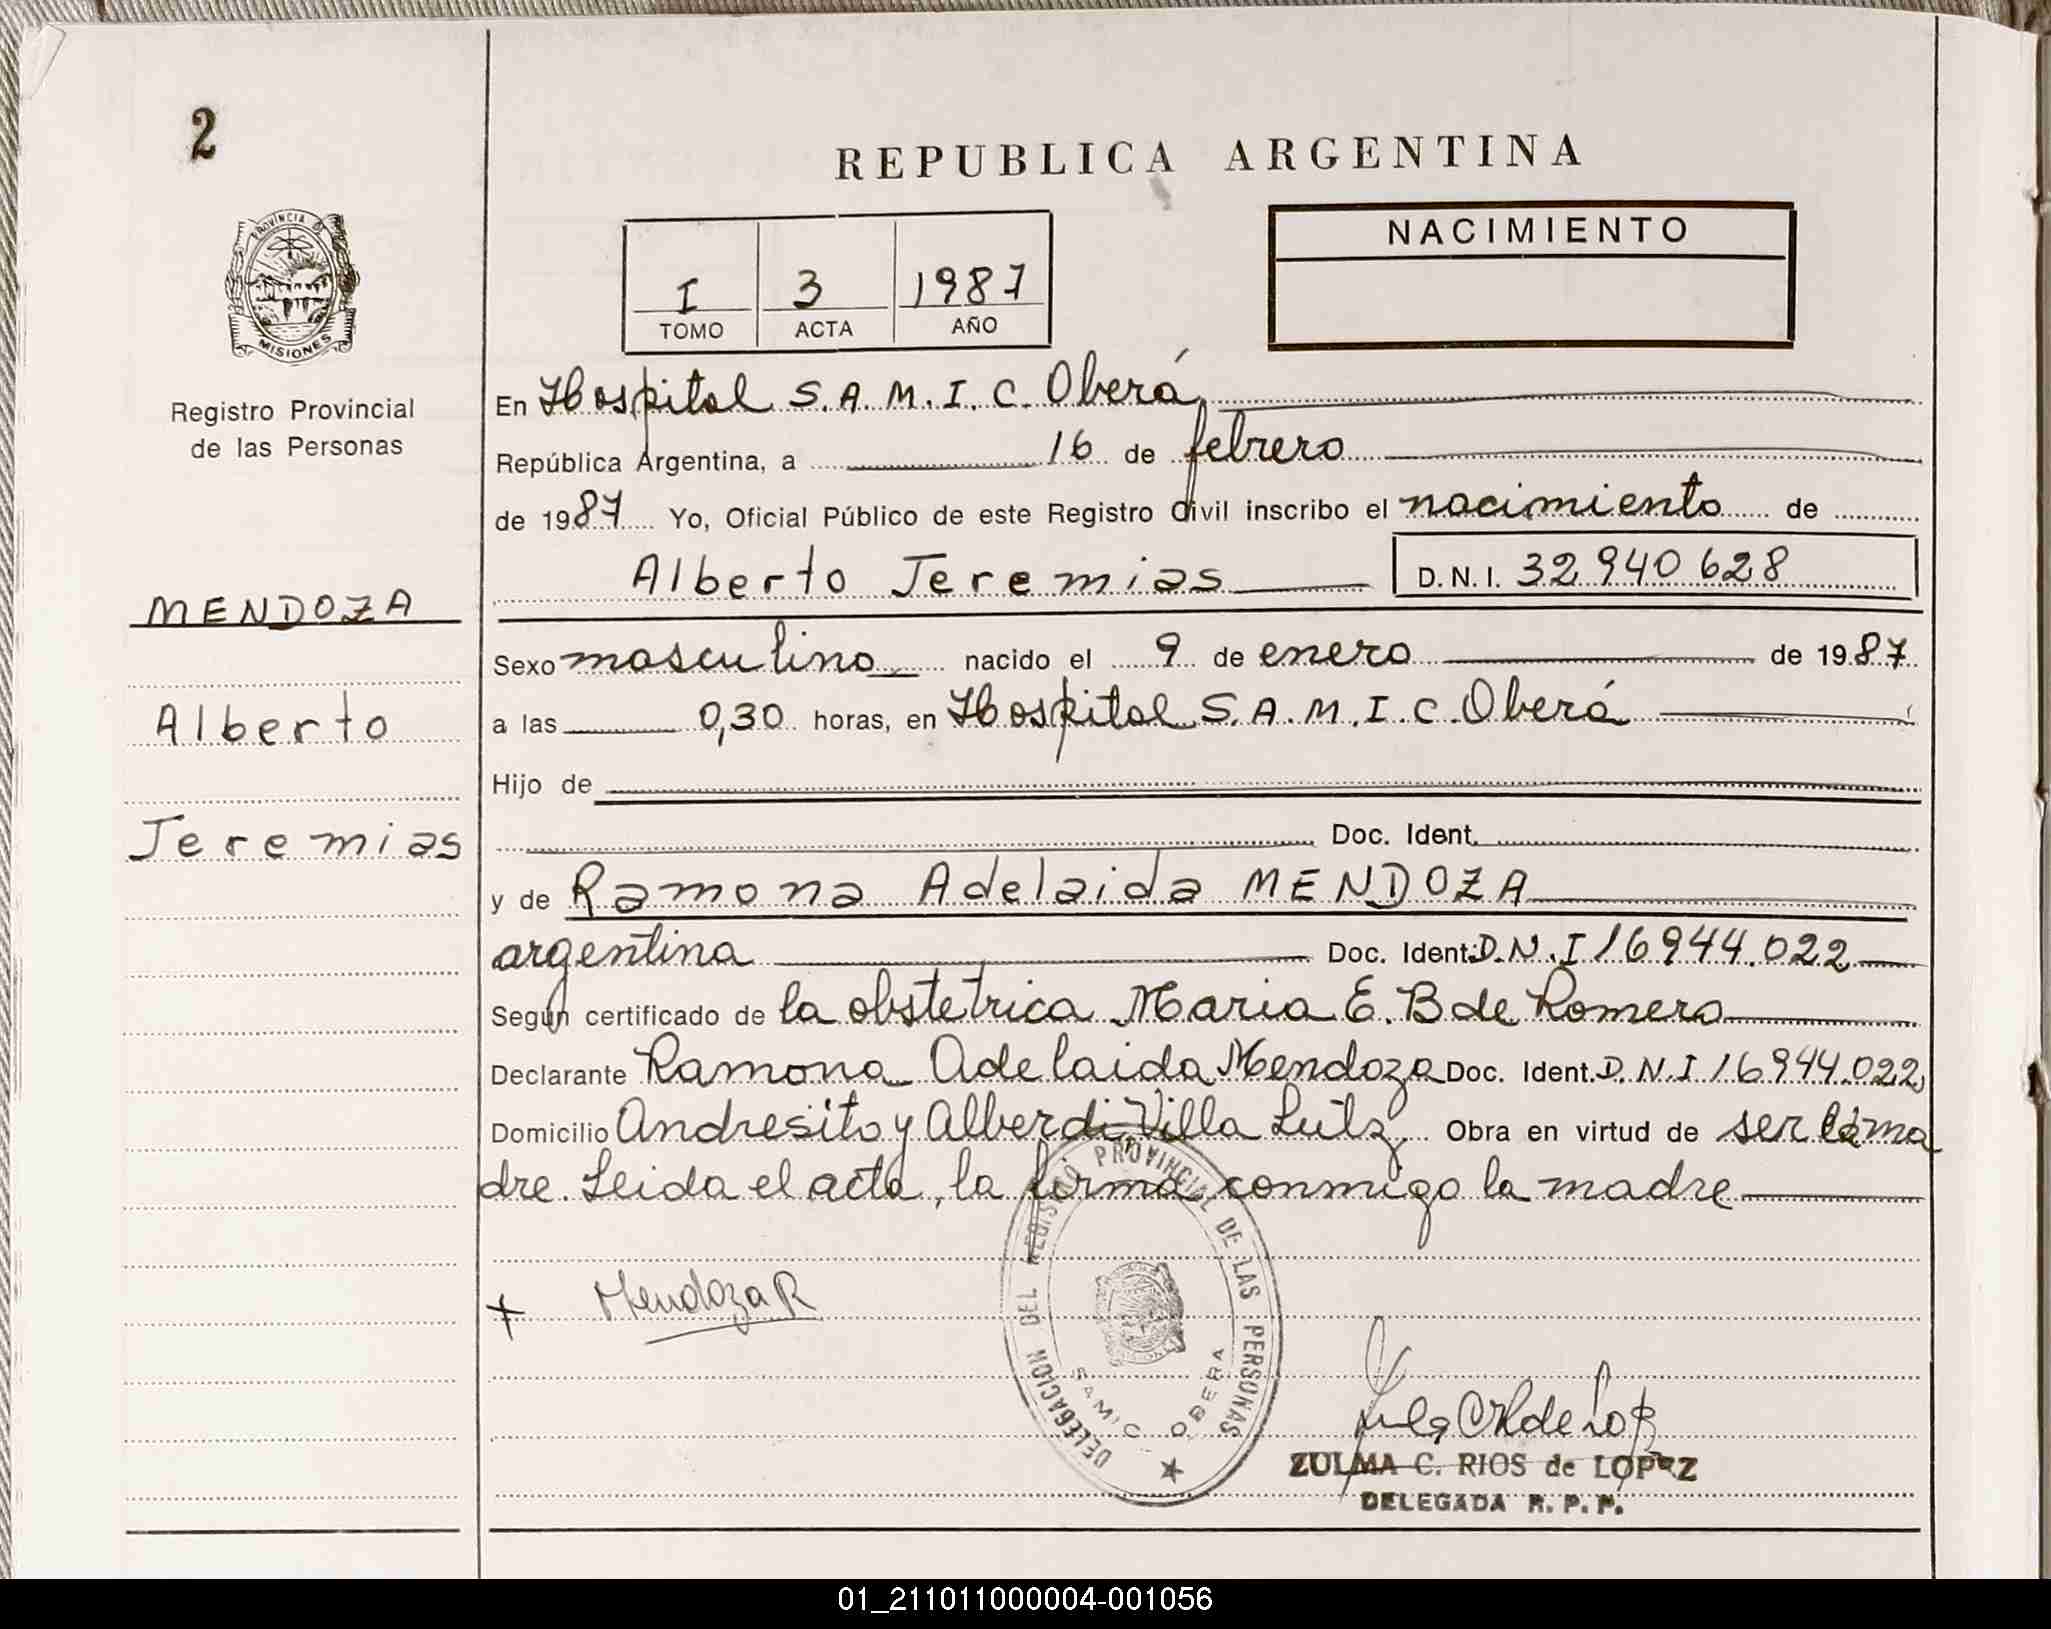 2
REPUBLICA ARGENTINA
PROVINCIA DE
MISIONES
Registro Provincial
de las Personas
I 3 1987
TOMO ACTA AÑO
NACIMIENTO
En Hospital S.A.M.I.C. Oberá
República Argentina, a 16 de febrero
de 1987 Yo, Oficial Público de este Registro Civil inscribo el nacimiento de
Alberto Jeremias D.N.I. 32940628
MENDOZA
Alberto
Jeremias
Sexo masculino nacido el 9 de enero de 1987
a las 0,30 horas, en Hospital S.A.M.I.C. Oberá
Hijo de
Doc. Ident.
y de Ramona Adelaida MENDOZA
argentina Doc. Ident. D.N.I 16944.022
Según certificado de la obstetrica Maria E. B de Romero
Declarante Ramona Adelaida Mendoza Doc. Ident. D.N.I 16944.022
Domicilio Andresito y Alberdi Villa Lutz Obra en virtud de ser la ma
dre. Leida el acta, la firma conmigo la madre
Mendoza R
DELEGACION DEL REGISTRO PROVINCIAL DE LAS PERSONAS
SAMIC OBERA
ZULMA C. RIOS de LOPEZ
DELEGADA R. P. P.
01_211011000004-001056